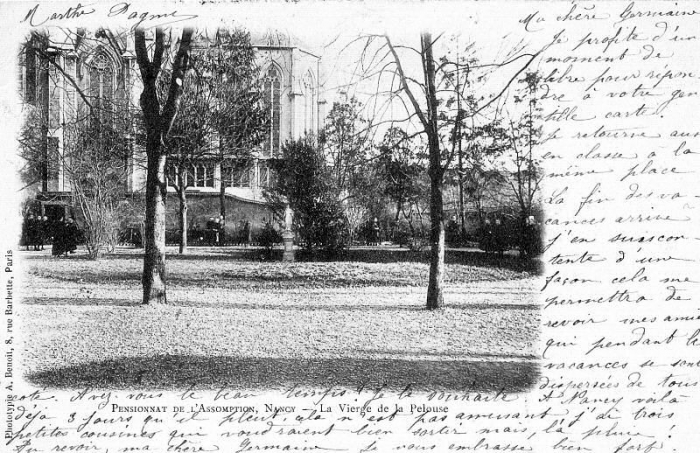 Marthe Pagny
Ma chère Germaine
Je profite d'un
moment de
libre pour répon
dre à votre gen
tille carte.
Je retourne aus
en classe à la
même place
La fin des va
cances arrive
j'en suis con
tente d'une
façon cela me
permettra de
revoir mes amie
qui pendant les
vacances se sont
dispersées de tous
côté. Avez-vous le beau temps? Je le souhaite A Nancy voilà
déjà 3 jours qu'il pleut, cela n'est pas amusant j'ai trois
petites cousines qui voudraient bien sortir mais, la pluie!
Au revoir, ma chère Germaine Je vous embrasse bien fort.
Pensionnat de l'Assomption, Nancy — La Vierge de la Pelouse
Phototypie A. Benoit, 8, rue Barbette, Paris